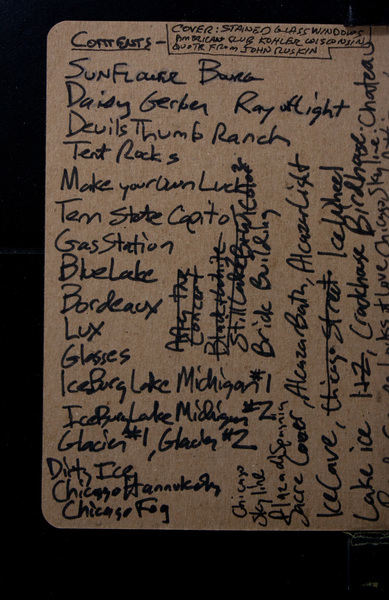 CONTENTS -
COVER: STAINED GLASS WINDOWS
AMERICAN CLUB KOHLER WISCONSIN
QUOTE FROM JOHN RUSKIN
SunFlower
Daisy Gerber Ray of Light
Devils Thumb Ranch
Tent Rocks
Make your Own Luck
Tenn State Capitol
Gas Station
Blue Lake
Bordeaux
Lux
Glasses
IceBurg Lake Michigan #1
IceBurg Lake Michigan #2
Glacier #1, Glacier #2
Dirty Ice
Chicago Hannukah
Chicago Fog
After the
Concert
Black + white
Still Lake
Brick Building
Chicago
Skyline
Sacre Coeur, Alcazar Bath, Alcazar Light
Ice Cave, Chicago Street Ice Wheel
Lake ice HZ, Crackhouse Birdhouse, Chateau
Chicago Skyline